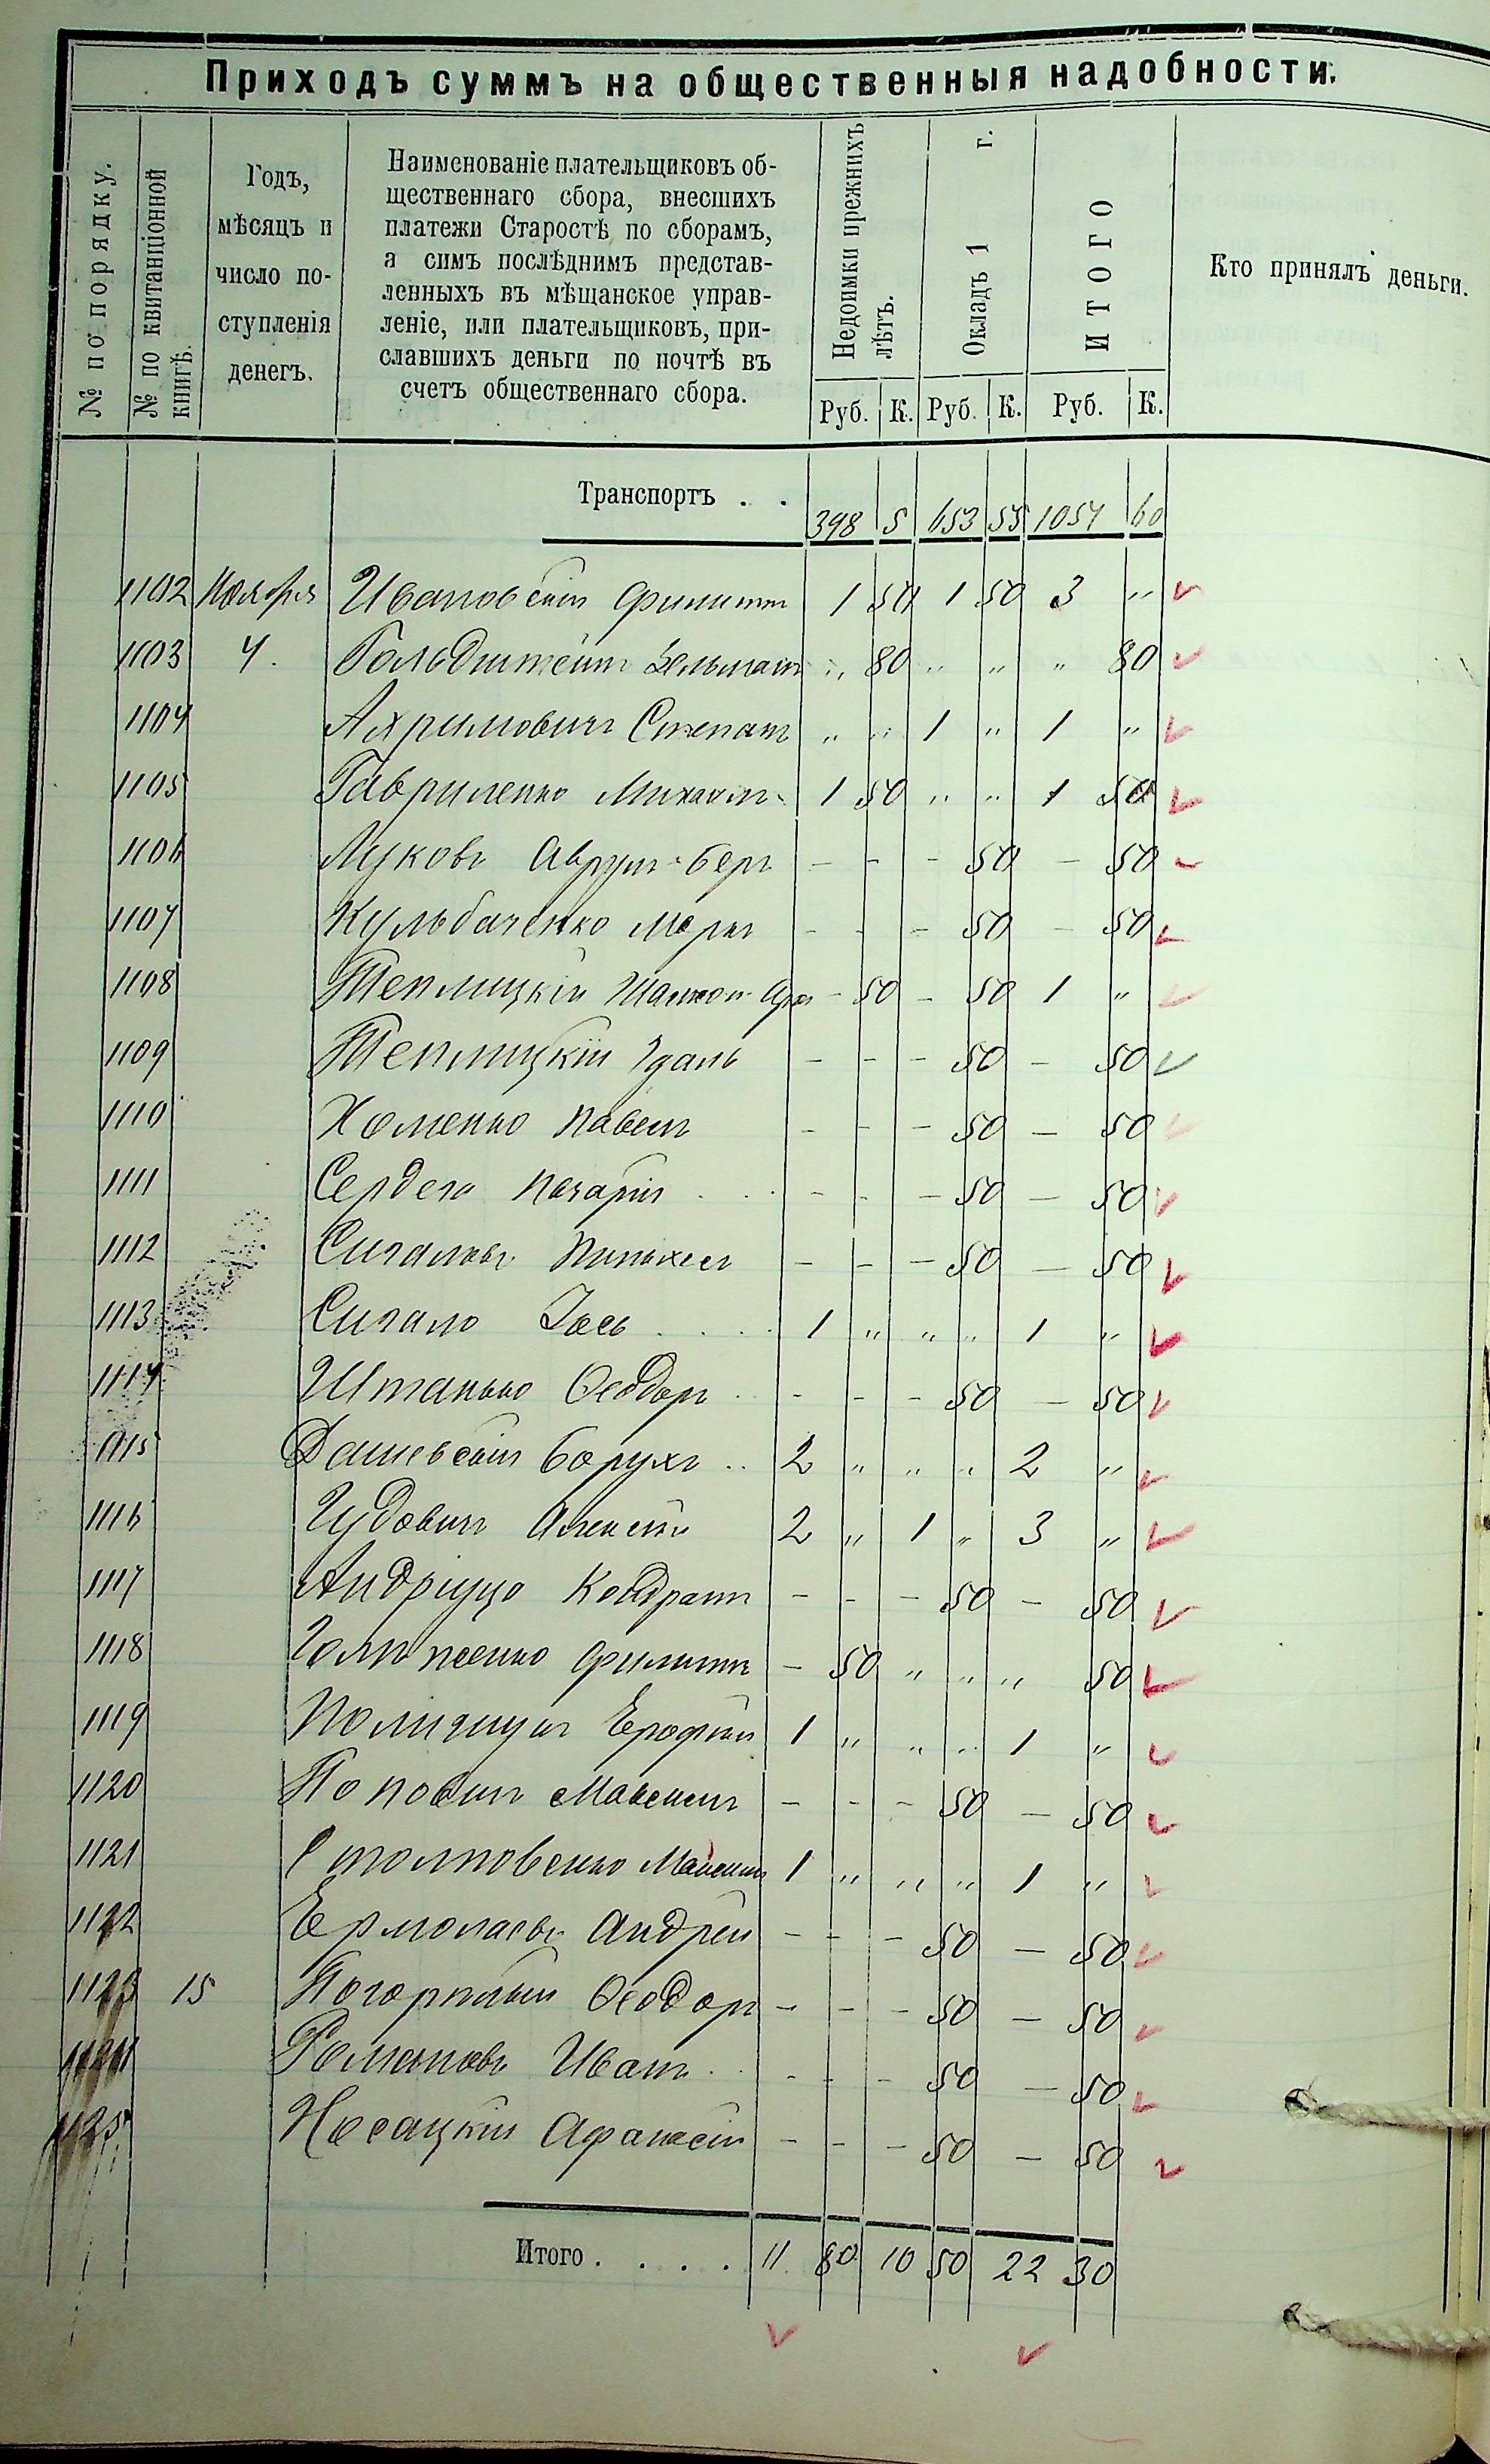 Приходъ суммъ на общественныя надобности.
№ по порядку.
№ по квитанціонной книгѣ.
Годъ,
мѣсяцъ и
число по-
ступленія
денегъ.
Наименованіе плательщиковъ об-
щественнаго сбора, внесшихъ
платежи Старостѣ по сборамъ,
а симъ послѣднимъ представ-
ленныхъ въ мѣщанское управ-
леніе, или плательщиковъ, при-
славшихъ деньги по почтѣ въ
счетъ общественнаго сбора.
Недоимки прежнихъ лѣтъ.
Окладъ 1 г.
ИТОГО
Кто принялъ деньги.
Руб. К. Руб. К. Руб. К.
Транспортъ . . 398 5 653 55 1051 60
1102 Ноября Ивановскій Филиппъ 1 50 1 50 3 "
1103 4. Гольдштейнъ Зельманъ " 80 " " " 80
1104 Ахримовичъ Степанъ " " 1 " 1 "
1105 Гавриленко Михаилъ 1 50 " " 1 50
1106 Луковъ Аврум-Беръ - - - 50 - 50
1107 Кульбаченко Маркъ - - - 50 - 50
1108 Теплицкій - 50 - 50 1 "
1109 Теплицкій Удаль - - - 50 - 50
1110 Хоменко Павелъ - - - 50 - 50
1111 Сердега Назарій - - - 50 - 50
1112 Сигаловъ Пинхесъ - - - 50 - 50
1113 Сигало Іось 1 " " " 1 "
1114 Штанько Ѳеодоръ - - - 50 - 50
1115 Дашевскій Борухъ 2 " " " 2 "
1116 Чудовичъ Алексѣй 2 " 1 " 3 "
1117 Андріуцо Кондратъ - - - 50 - 50
1118 Филиппъ - 50 " " " 50
1119 Полищукъ Ерофѣй 1 " " " 1 "
1120 Поповичъ Максимъ - - - 50 - 50
1121 Столповенко Максимъ 1 " " " 1 "
1122 Ермолаевъ Андрей - - - 50 - 50
1123 15 Погорѣлый Ѳеодоръ - - - 50 - 50
1124 Романовъ Иванъ - - - 50 - 50
1125 Носацкій Афанасій - - - 50 - 50
Итого . . . . 11 80 10 50 22 30